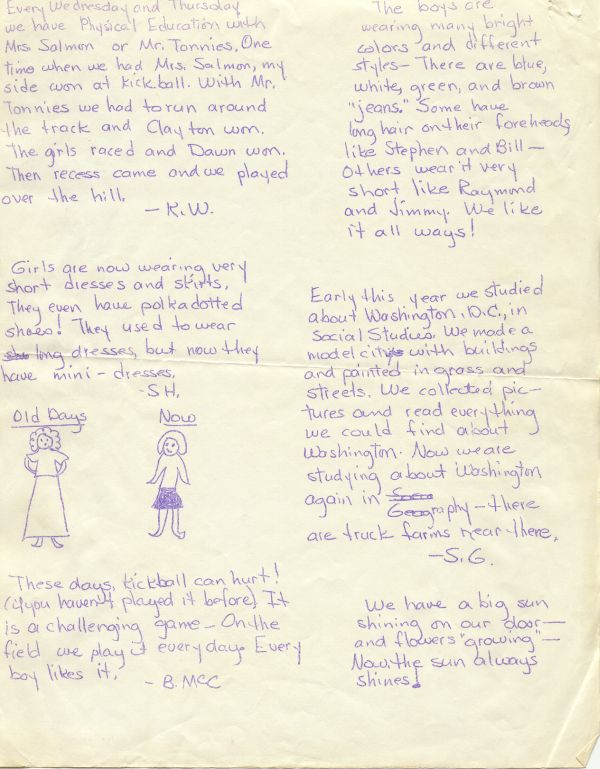 Every Wednesday and Thursday
we have Physical Education with
Mrs. Salmon or Mr. Tonnies. One
time when we had Mrs. Salmon, my
side won at kickball. With Mr.
Tonnies we had to run around
the track and Clayton won.
The girls raced and Dawn won.
Then recess came and we played
over the hill.
— K.W.
Girls are now wearing very
short dresses and skirts.
They even have polkadotted
shoes! They used to wear
long dresses, but now they
have mini-dresses.
-S.H.
Old Days
Now
These days, kickball can hurt!
(if you haven't played it before) It
is a challenging game — On the
field we play it every day. Every
boy likes it.
- B. McC
The boys are
wearing many bright
colors and different
styles— There are blue,
white, green, and brown
"jeans." Some have
long hair on their foreheads
like Stephen and Bill—
others wear it very
short like Raymond
and Jimmy. We like
it all ways!
Early this year we studied
about Washington, D.C., in
Social Studies. We made a
model city with buildings
and painted in grass and
streets. We collected pic-
tures and read everything
we could find about
Washington. Now we are
studying about Washington
again in
Geography — there
are truck farms near there.
—S.G.
We have a big sun
shining on our door—
and flowers "growing"—
Now the sun always
shines!